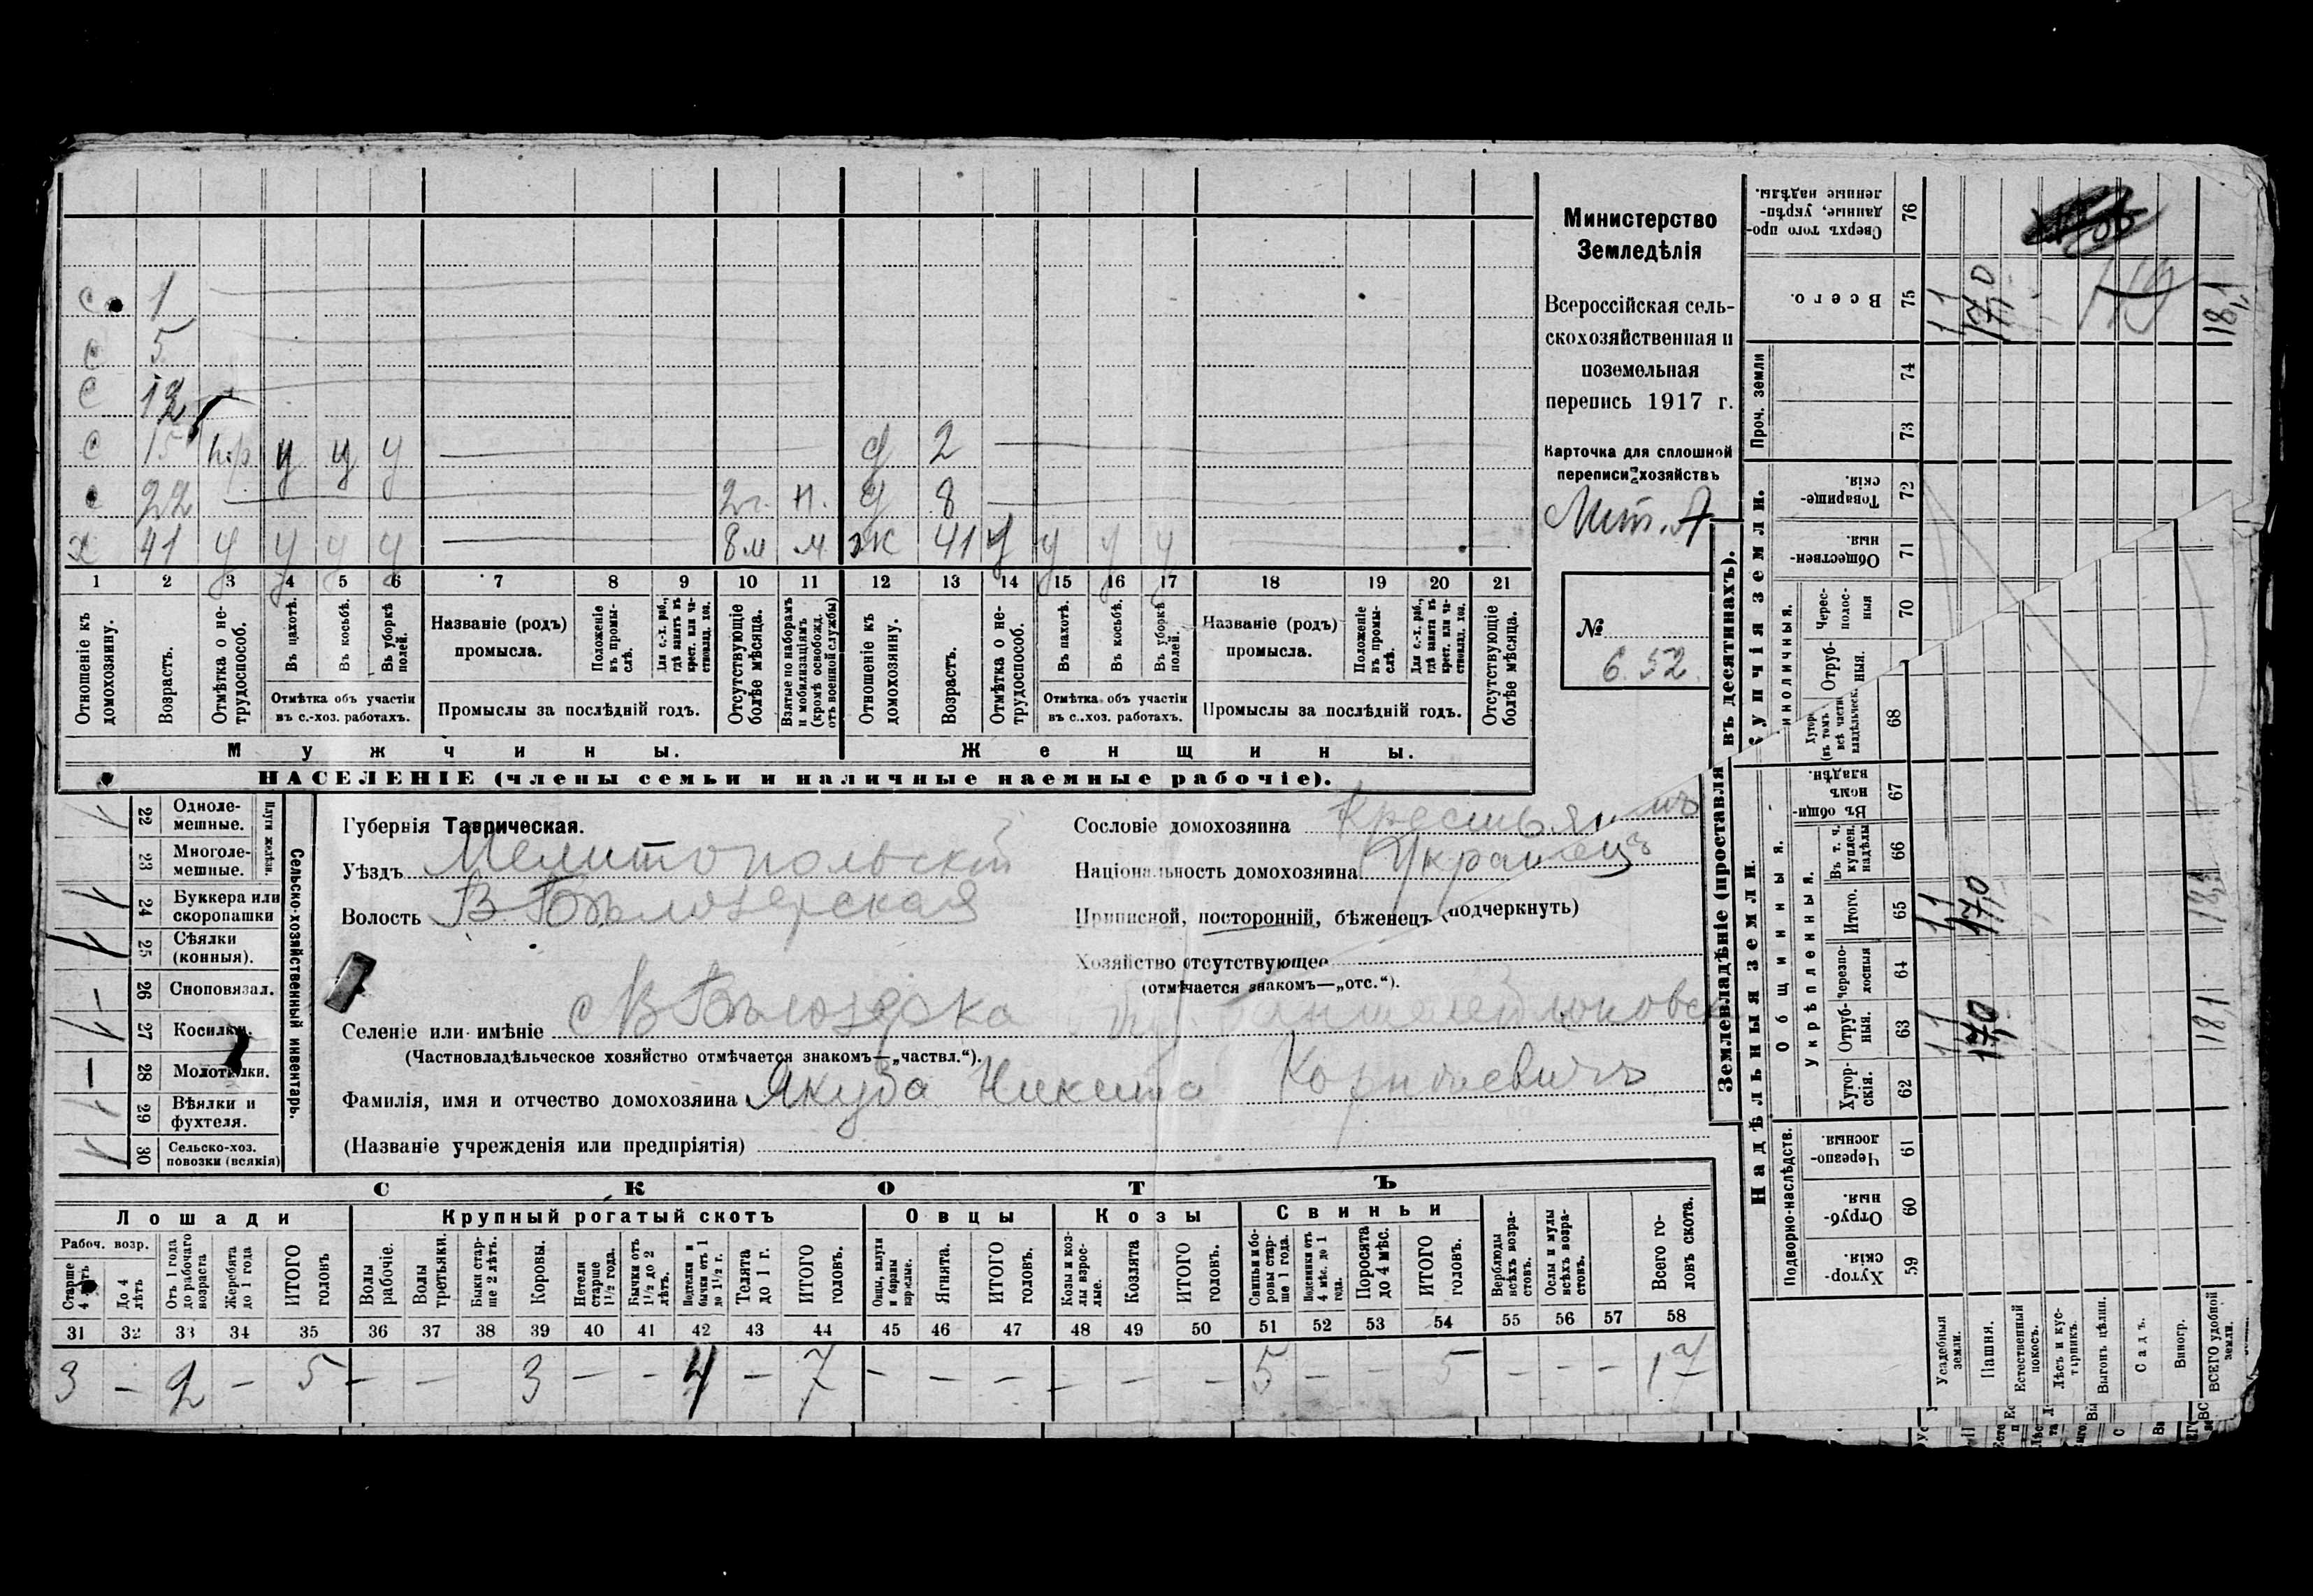 с 1
с 5
с 12
с 15 н.р у у у д 2
с 22 2г. н. д 8
х 41 у у у у 8м м ж 41 у у у у
1 2 3 4 5 6 7 8 9 10 11 12 13 14 15 16 17 18 19 20 21
Отношеніе къ домохозяину.
Возрастъ.
Отмѣтка о не-трудоспособ.
Въ пахотѣ.
Въ косьбѣ.
Въ уборкѣ полей.
Отмѣтка объ участіи
въ с.-хоз. работахъ.
Названіе (родъ)
промысла.
Положеніе въ промы-слѣ.
Для с.-х. раб., гдѣ занятъ въ крест. или ча-ствовлад. хоз.
Промыслы за послѣдній годъ.
Отсутствующіе болѣе мѣсяца.
Взятые по наборамъ и мобилизаціямъ (кромѣ освобожд. отъ военной службы)
Отношеніе къ домохозяину.
Возрастъ.
Отмѣтка о не-трудоспособ.
Въ пахотѣ.
Въ косьбѣ.
Въ уборкѣ полей.
Отмѣтка объ участіи
въ с.-хоз. работахъ.
Названіе (родъ)
промысла.
Положеніе въ промы-слѣ.
Для с.-х. раб., гдѣ занята въ крест. или ча-ствовлад. хоз.
Промыслы за послѣдній годъ.
Отсутствующіе болѣе мѣсяца.
Мужчины.
Женщины.
НАСЕЛЕНІЕ (члены семьи и наличные наемные рабочіе).
Министерство
Земледѣлія
Всероссійская сель-
скохозяйственная и
поземельная
перепись 1917 г.
Карточка для сплошной
переписи хозяйствъ
Лит. А
№
6.52.
Сельско-хозяйственный инвентарь.
22 Одноле-мешные.
23 Многоле-мешные.
24 Буккера или скоропашки
25 Сѣялки (конныя).
26 Сноповязал.
27 Косилки.
28 Молотилки.
29 Вѣялки и фухтеля.
30 Сельско-хоз. повозки (всякія)
Губернія Таврическая.
Уѣздъ Мелитопольскій
Волость В Бѣлозерская
Сословіе домохозяина Крестьянинъ
Національность домохозяина Украинецъ
Приписной, посторонній, бѣженецъ (подчеркнуть)
Хозяйство отсутствующее
(отмѣчается знакомъ—„отс.“).
Селеніе или имѣніе с В Бѣлозерка
(Частновладѣльческое хозяйство отмѣчается знакомъ—„частвл.“).
Фамилія, имя и отчество домохозяина Якуба Никита Корнѣевичъ
(Названіе учрежденія или предпріятія)
СКОТЪ
Лошади
Крупный рогатый скотъ
Овцы
Козы
Свиньи
Рабоч. возр.
Старше 4 лѣтъ
До 4 лѣтъ
Отъ 1 года до рабочаго возраста
Жеребята до 1 года
ИТОГО головъ
Волы рабочіе.
Волы третьяки.
Быки стар-ше 2 лѣтъ.
Коровы.
Нетели старше 1½ года.
Бычки отъ 1½ до 2 лѣтъ.
Подтелки и бычки отъ 1 до 1½ г.
Телята до 1 г.
ИТОГО головъ.
Овцы, валухи и бараны взрослые.
Ягнята.
ИТОГО головъ.
Козы и коз-лы взрос-лые.
Козлята
ИТОГО головъ.
Свиньи и бо-ровы стар-ше 1 года.
Подсвинки отъ 4 мѣс. до 1 года.
Поросята до 4 мѣс.
ИТОГО головъ.
Верблюды всѣхъ возра-стовъ.
Ослы и мулы всѣхъ возра-стовъ.
Всего го-ловъ скота.
31 32 33 34 35 36 37 38 39 40 41 42 43 44 45 46 47 48 49 50 51 52 53 54 55 56 57 58
3 – 2 – 5 – – 3 – – 4 – 7 – – – – – – 5 – – 5 – – – 17
Землевладѣніе (проставля въ десятинахъ).
Надѣльныя земли.
упчія земли.
Проч. земли
Общинныя.
Укрѣпленныя.
Подворно-наслѣдств.
Сверхъ того про-данные, укрѣп-ленные надѣлы. 76
Всего. 75
74
73
Товарище-скія. 72
Обществен-ныя. 71
Черес-полос-ныя 70
Отруб-ныя.
68
Въ общи-номъ владѣн. 67
Въ т. ч. куплен. надѣлы 66
Итого. 65
Черезпо-лосныя 64
Отруб-ныя. 63
Хутор-скія. 62
Черезпо-лосныя 61
Отруб-ныя. 60
Хутор-скія. 59
Усадебныя земли.
Пашня.
Естественный покосъ.
Лѣсъ и кус-тарникъ.
Выгонъ цѣлин.
Садъ.
Виногр.
ВСЕГО удобной земли.
1,1 17,0 18,1
1,1 17,0 18,1
1,1 17,0 18,1